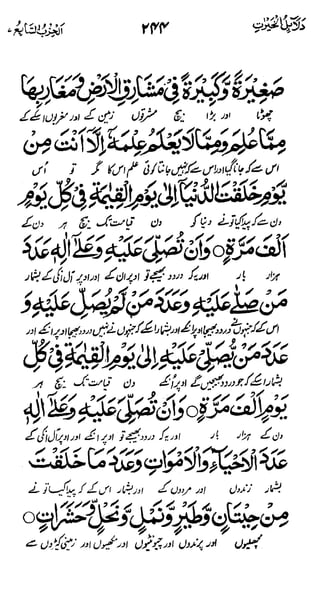 دلائل الخیرات ۲۴۴ الحزب السابع
صَغِيْرَةً وَّكَبِيْرَةً فِيْ مَشَارِقِ الْاَرْضِ وَمَغَارِبِهَا
چھوٹا اور بڑا بیچ مشرقوں زمین کے اور مغربوں اسکے کے
مِمَّا عُلِمَ وَمِمَّا لَا يَعْلَمُ عِلْمَهٗٓ اِلَّآ اَنْتَ مِنْ
اس سے کہ جانا گیا اور اس سے کہ نہیں جانتا کوئی علم اس کا مگر تو اس
يَوْمِ خَلَقْتَ الدُّنْيَآ اِلٰى يَوْمِ الْقِيٰمَةِ فِيْ كُلِّ يَوْمٍ
دن سے کہ پیدا کیا تو نے دنیا کو دن قیامت تک بیچ ہر دن کے
اَلْفَ مَرَّةٍ ○ وَاَنْ تُصَلِّيَ عَلَيْهِ وَعَلٰٓى اٰلِهٖ عَدَدَ
ہزار بار اور یہ کہ درود بھیجے تو اوپر ان کے اور اوپر آل انکی کے بشمار
مَنْ صَلّٰى عَلَيْهِ وَعَدَدَ مَنْ لَّمْ يُصَلِّ عَلَيْهِ وَ
اسکے کہ جنہوں نے درود بھیجا اوپر انکے اور بشمار اسکے کہ جنہوں نے نہیں درود بھیجا اوپر انکے اور
عَدَدَ مَنْ يُّصَلِّيْ عَلَيْهِ اِلٰى يَوْمِ الْقِيٰمَةِ فِيْ كُلِّ
بشمار اسکے کہ جو درود بھیجیں گے اوپر انکے دن قیامت تک بیچ ہر
يَوْمٍ اَلْفَ مَرَّةٍ ○ وَاَنْ تُصَلِّيَ عَلَيْهِ وَعَلٰٓى اٰلِهٖ
دن کے ہزار بار اور یہ کہ درود بھیجے تو اوپر انکے اور اوپر آل انکی کے
عَدَدَ الْاَحْيَآءِ وَالْاَمْوَاتِ وَعَدَدَ مَا خَلَقْتَ
بشمار زندوں اور مردوں کے اور بشمار اس کے کہ پیدا کیا تو نے
مِنْ حِيْتَانٍ وَّطَيْرٍ وَّنَمْلٍ وَّنَحْلٍ وَّحَشَرَاتٍ ○
مچھلیوں اور پرندوں اور چیونٹیوں اور مکھیوں اور زمینی کیڑوں سے